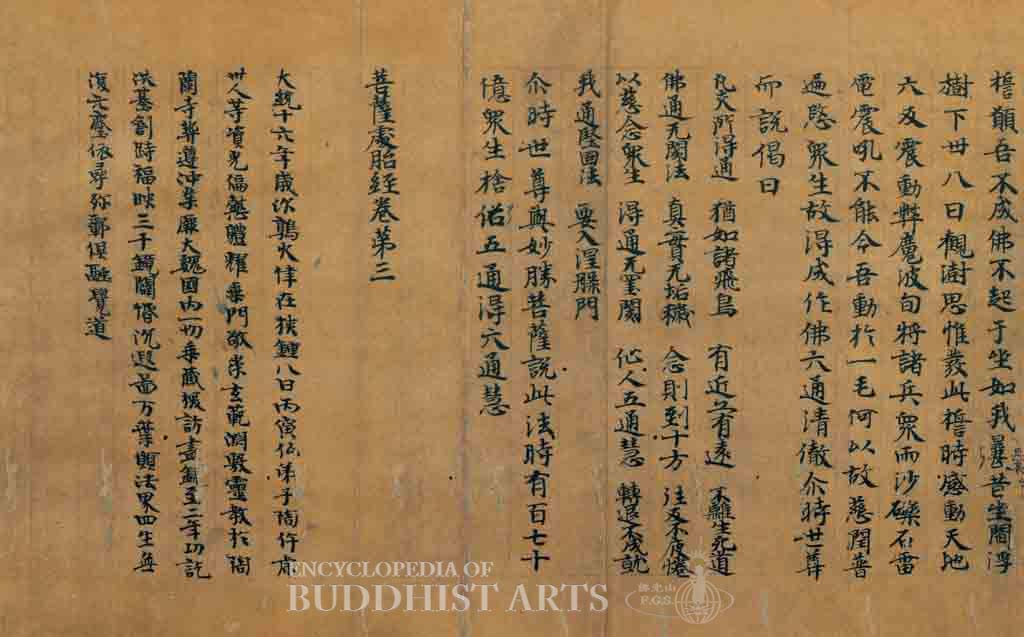 誓願吾不成佛不起于坐如我曩昔坐閻浮
樹下卌八日觀樹思惟發此誓時感動天地
六反震動弊魔波旬將諸兵眾雨沙礫石雷
電震吼不能令吾動於一毛何以故慈潤普
遍愍眾生故得成作佛六通清徹尒時世尊
而說偈曰
凡夫所得通 猶如諸飛鳥 有近亦有遠 不離生死道
佛通无閡法 真實无垢穢 念則到十方 往反不疲惓
以慈念眾生 得通无罣閡 他人五通慧 轉退不成就
我通堅固法 要入涅槃門
尒時世尊與妙勝菩薩說此法時有百七十
億眾生捨俗五通得六通慧
菩薩處胎經卷第三
大統十六年歲次鶉火律在挾鍾八日丙寅仏弟子陶仵虎
卌人等資光體耀乘門敬崇玄範淵敷靈教於陶
蘭寺遵沖業大魏國內一切乘藏援訪盡錄至二年功訖
洪基創時福映三千鏡沉遐啚万葉願法界四生
復元塵依弥鄣俱融覺道
ENCYCLOPEDIA OF
BUDDHIST ARTS
佛光山
F.G.S.